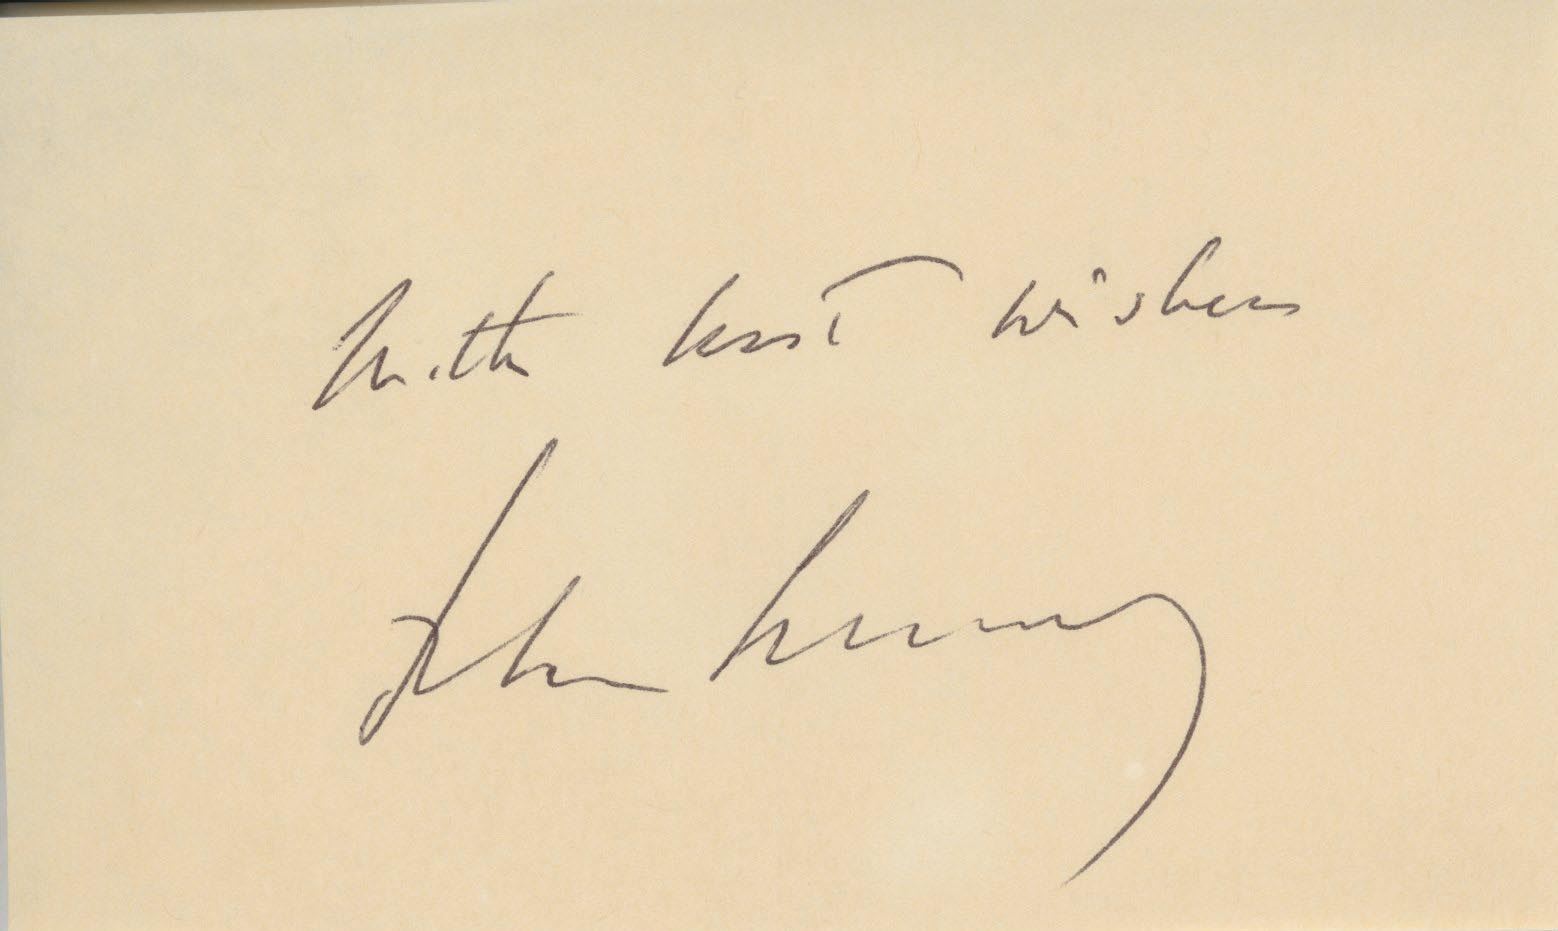 With best wishes
John